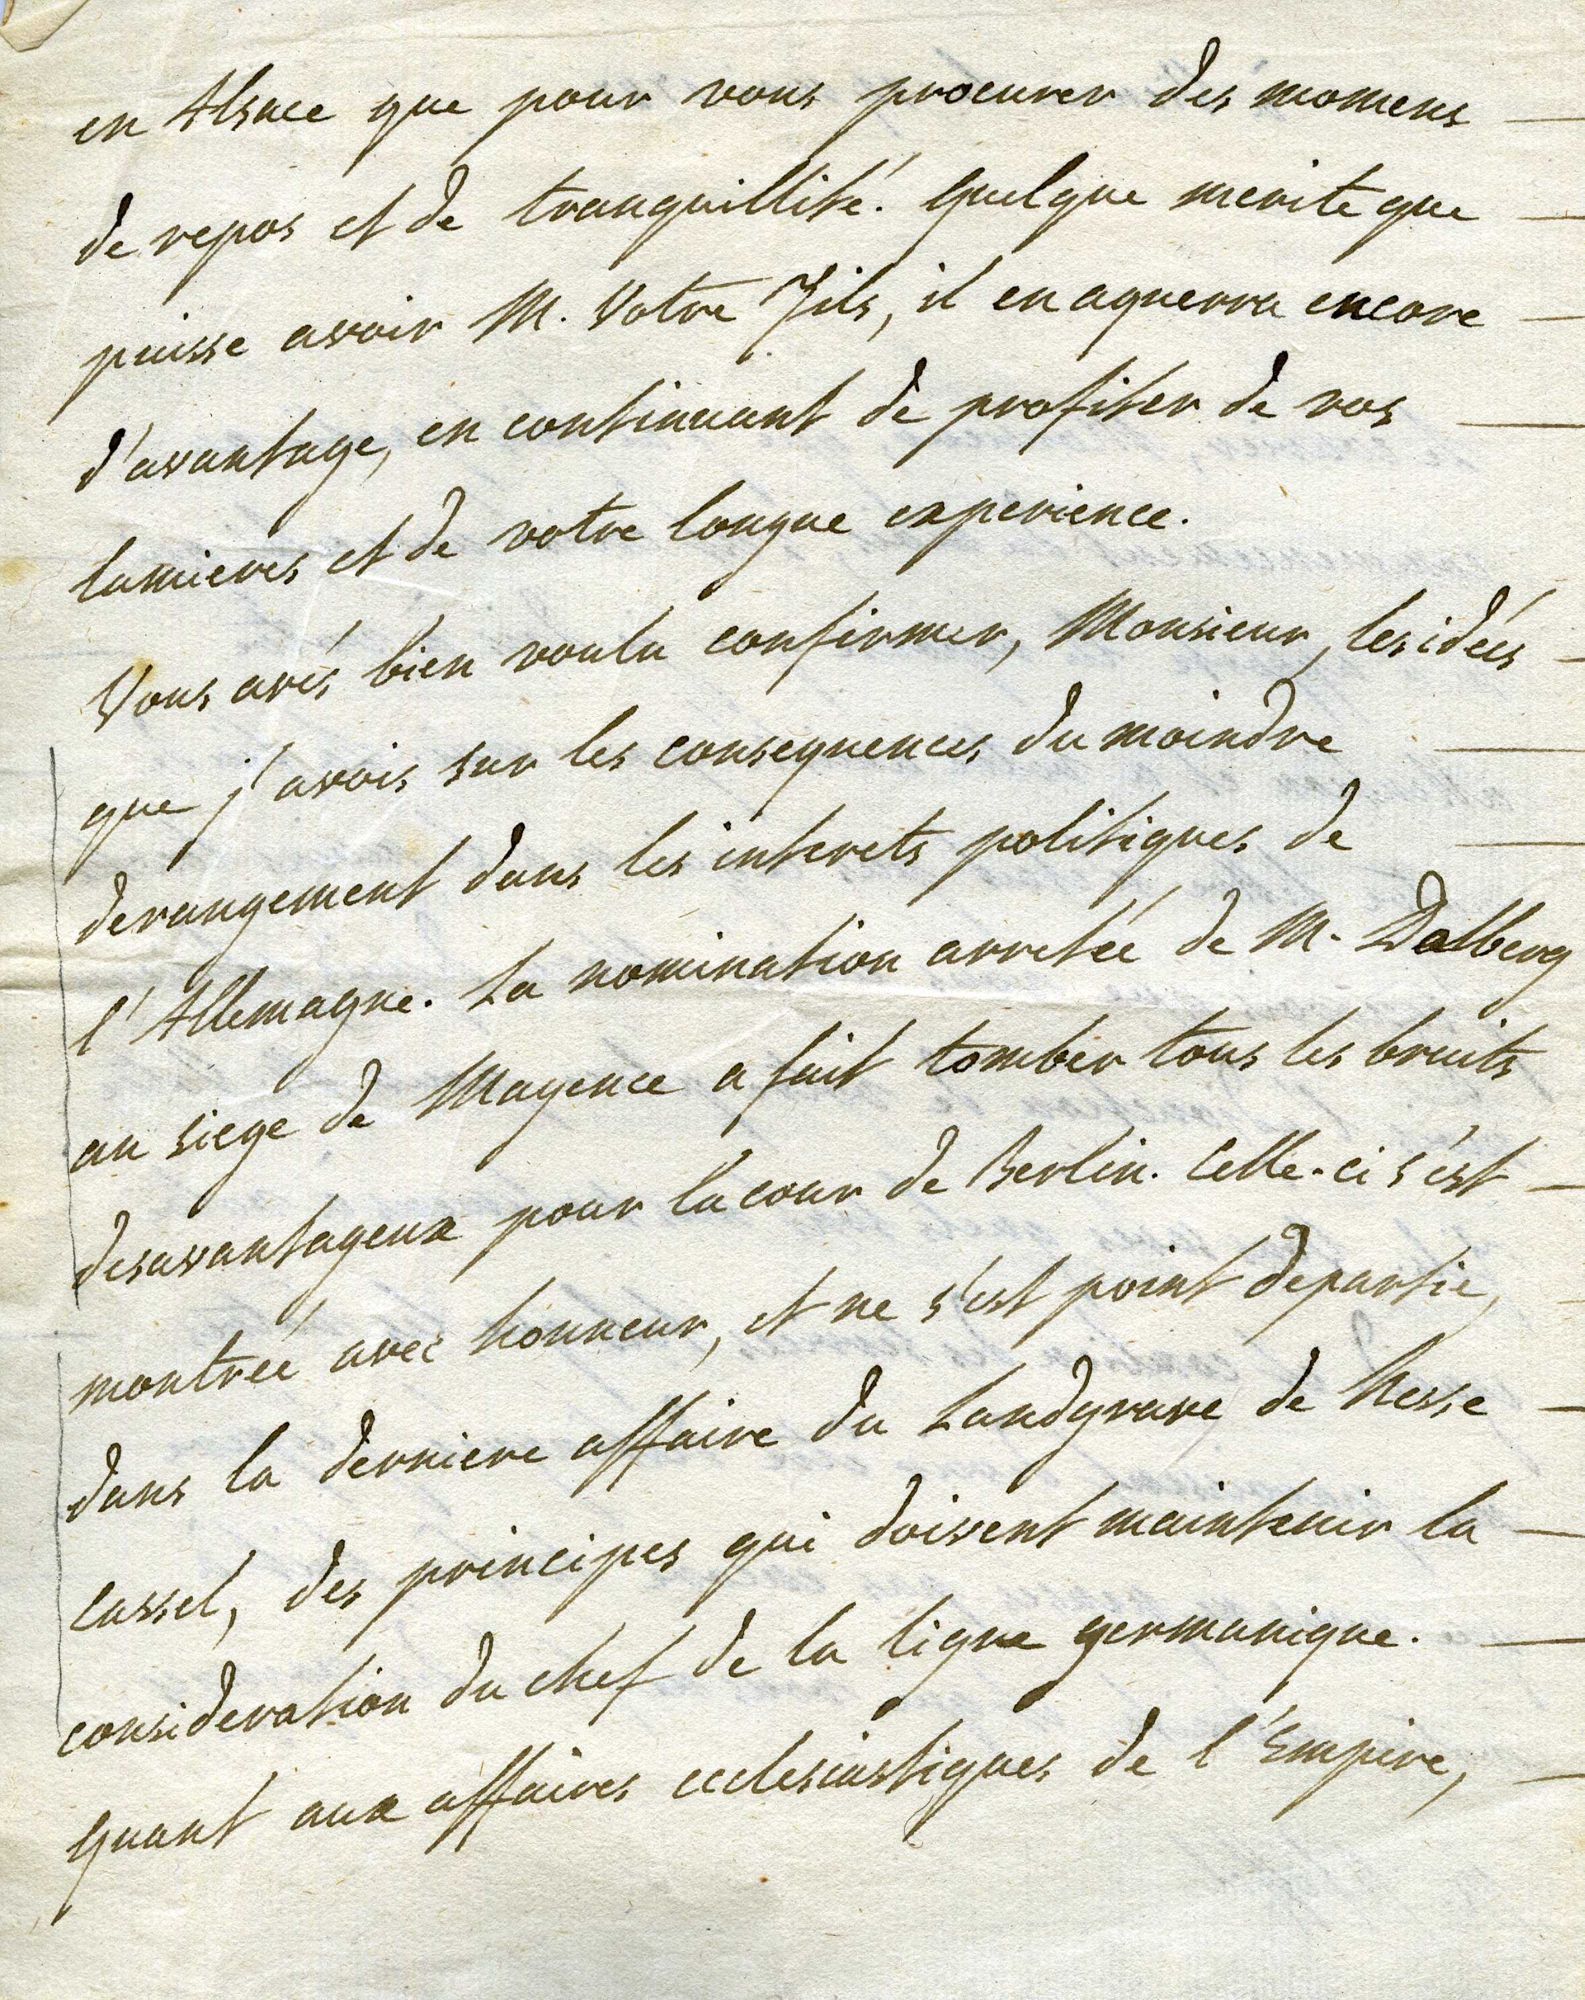 en Alsace que pour vous procurer des momens
de repos et de tranquillité. Quelque merite que
puisse avoir M. Votre Fils, il en aquerra encore
d'avantage, en continuant de profiter de vos
lumieres et de votre longue experience.
Vous avés bien voulu confirmer, Monsieur, les idées
que j'avois sur les consequences du moindre
derangement dans les interets politiques de
l'Allemagne. La nomination arretée de M. Dalberg
au siege de Mayence a fait tomber tous les bruits
desavantageux pour la cour de Berlin. Celle-ci s'est
montrée avec honneur, et ne s'est point departie,
dans la derniere affaire du Landgrave de Hesse
Cassel, des principes qui doivent maintenir la
consideration du chef de la ligue germanique.
Quant aux affaires ecclesiastiques de l'Empire,